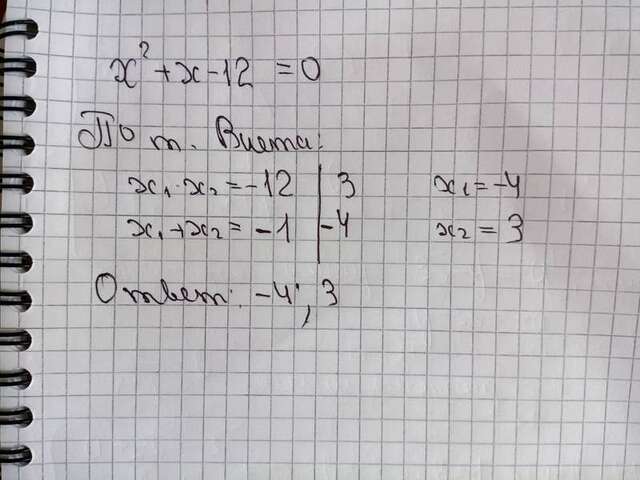 x² + x - 12 = 0
По т. Виета:
x₁ · x₂ = -12 | 3
x₁ + x₂ = -1 | -4
x₁ = -4
x₂ = 3
Ответ: -4; 3